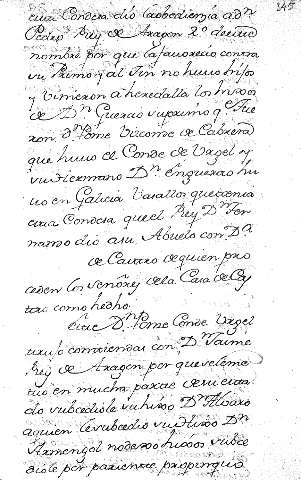 145
esta Condesa dio la obediençia a Dn
Pedro Rey de Aragon 2º de este
nombre por que la favoreçio contra
su Primo y al fin no huvo hijos
y vinieron a heredallo los hixos
de Dn Guerao su primo q. fue
ron Dn Ponse Visconde de Cabrera
que huvo el Conde de Vrgel y
su Hermano Dn Enguerao hu
uo en Galicia Vasallos que tenia
esta Condesa que el Rey Dn Fer
nando dio a su Abuelo con Dª
de Castro de quien pro
ceden los señores de la Casa de
como hedho
este Dn Ponse Conde Vrgel
tuvo contiendas con Dn Jaume
Rey de Aragon por que se le me
tio en mucha parte de su esta
do subcediole su hixo Dn Alvaro
a quien le subcedio su hixo Dn
Armengol no dexo hixos subce
diole por pariente propinquo